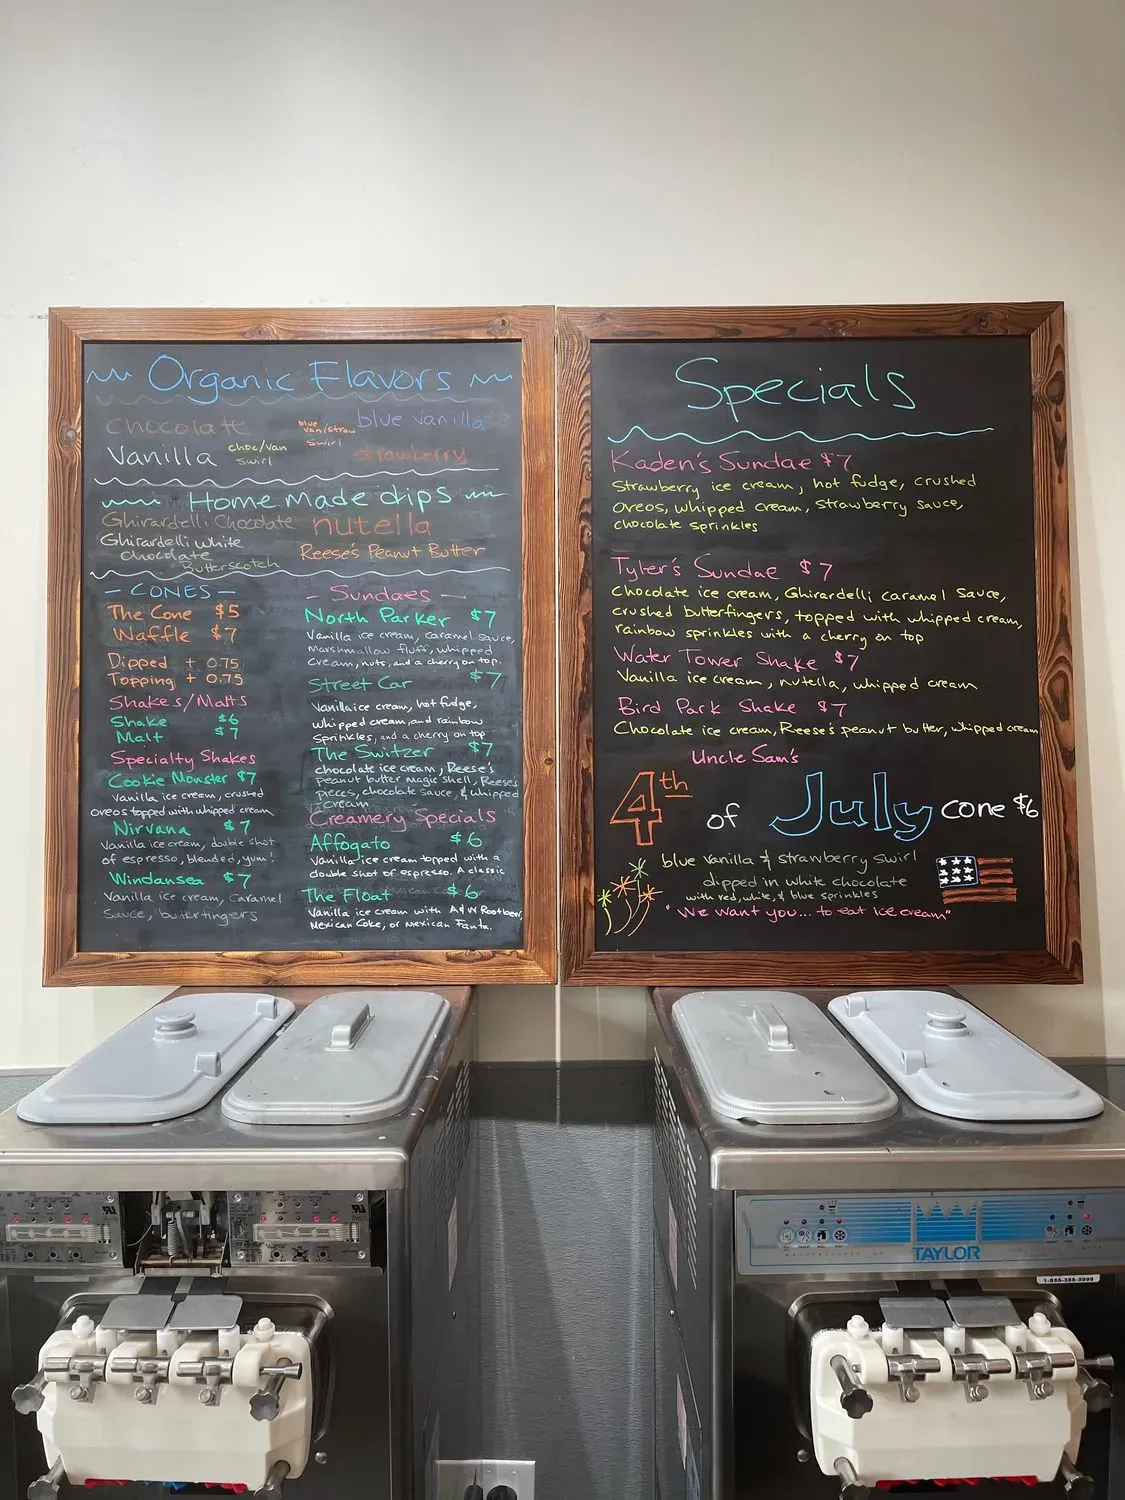 Organic Flavors
chocolate
blue van/straw
swirl
blue vanilla
Vanilla
choc/van
swirl
strawberry
Home made dips
Ghirardelli Chocolate
nutella
Ghirardelli white
chocolate
Reese's Peanut Butter
Butterscotch
- CONES -
The Cone $5
Waffle $7
Dipped + 0.75
Topping + 0.75
Shakes/Malts
Shake $6
Malt $7
Specialty Shakes
Cookie Monster $7
Vanilla ice cream, crushed
oreos topped with whipped cream
Nirvana $7
Vanilla ice cream, double shot
of espresso, blended, yum!
Windansea $7
Vanilla ice cream, caramel
Sauce, butterfingers
- Sundaes -
North Parker $7
Vanilla ice cream, caramel sauce,
marshmallow fluff, whipped
cream, nuts, and a cherry on top.
Street Car $7
Vanilla ice cream, hot fudge,
whipped cream, and rainbow
Sprinkles, and a cherry on top
The Switzer $7
chocolate ice cream, Reese's
peanut butter magic shell, Reeses
pieces, chocolate sauce, & whipped
cream
Creamery Specials
Affogato $6
Vanilla ice cream topped with a
double shot of espresso. A classic
The Float $6
Vanilla ice cream with A&W Rootbeer,
Mexican Coke, or Mexican Fanta.
Specials
Kaden's Sundae $7
Strawberry ice cream, hot fudge, crushed
oreos, whipped cream, strawberry sauce,
chocolate sprinkles
Tyler's Sundae $7
Chocolate ice cream, Ghirardelli caramel sauce,
crushed butterfingers, topped with whipped cream,
rainbow sprinkles with a cherry on top
Water Tower Shake $7
Vanilla ice cream, nutella, whipped cream
Bird Park Shake $7
Chocolate ice cream, Reese's peanut butter, whipped cream
Uncle Sam's
4th of July cone $6
blue vanilla & strawberry swirl
dipped in white chocolate
with red, white, & blue sprinkles
"We want you... to eat ice cream"
TAYLOR
1-855-356-5999